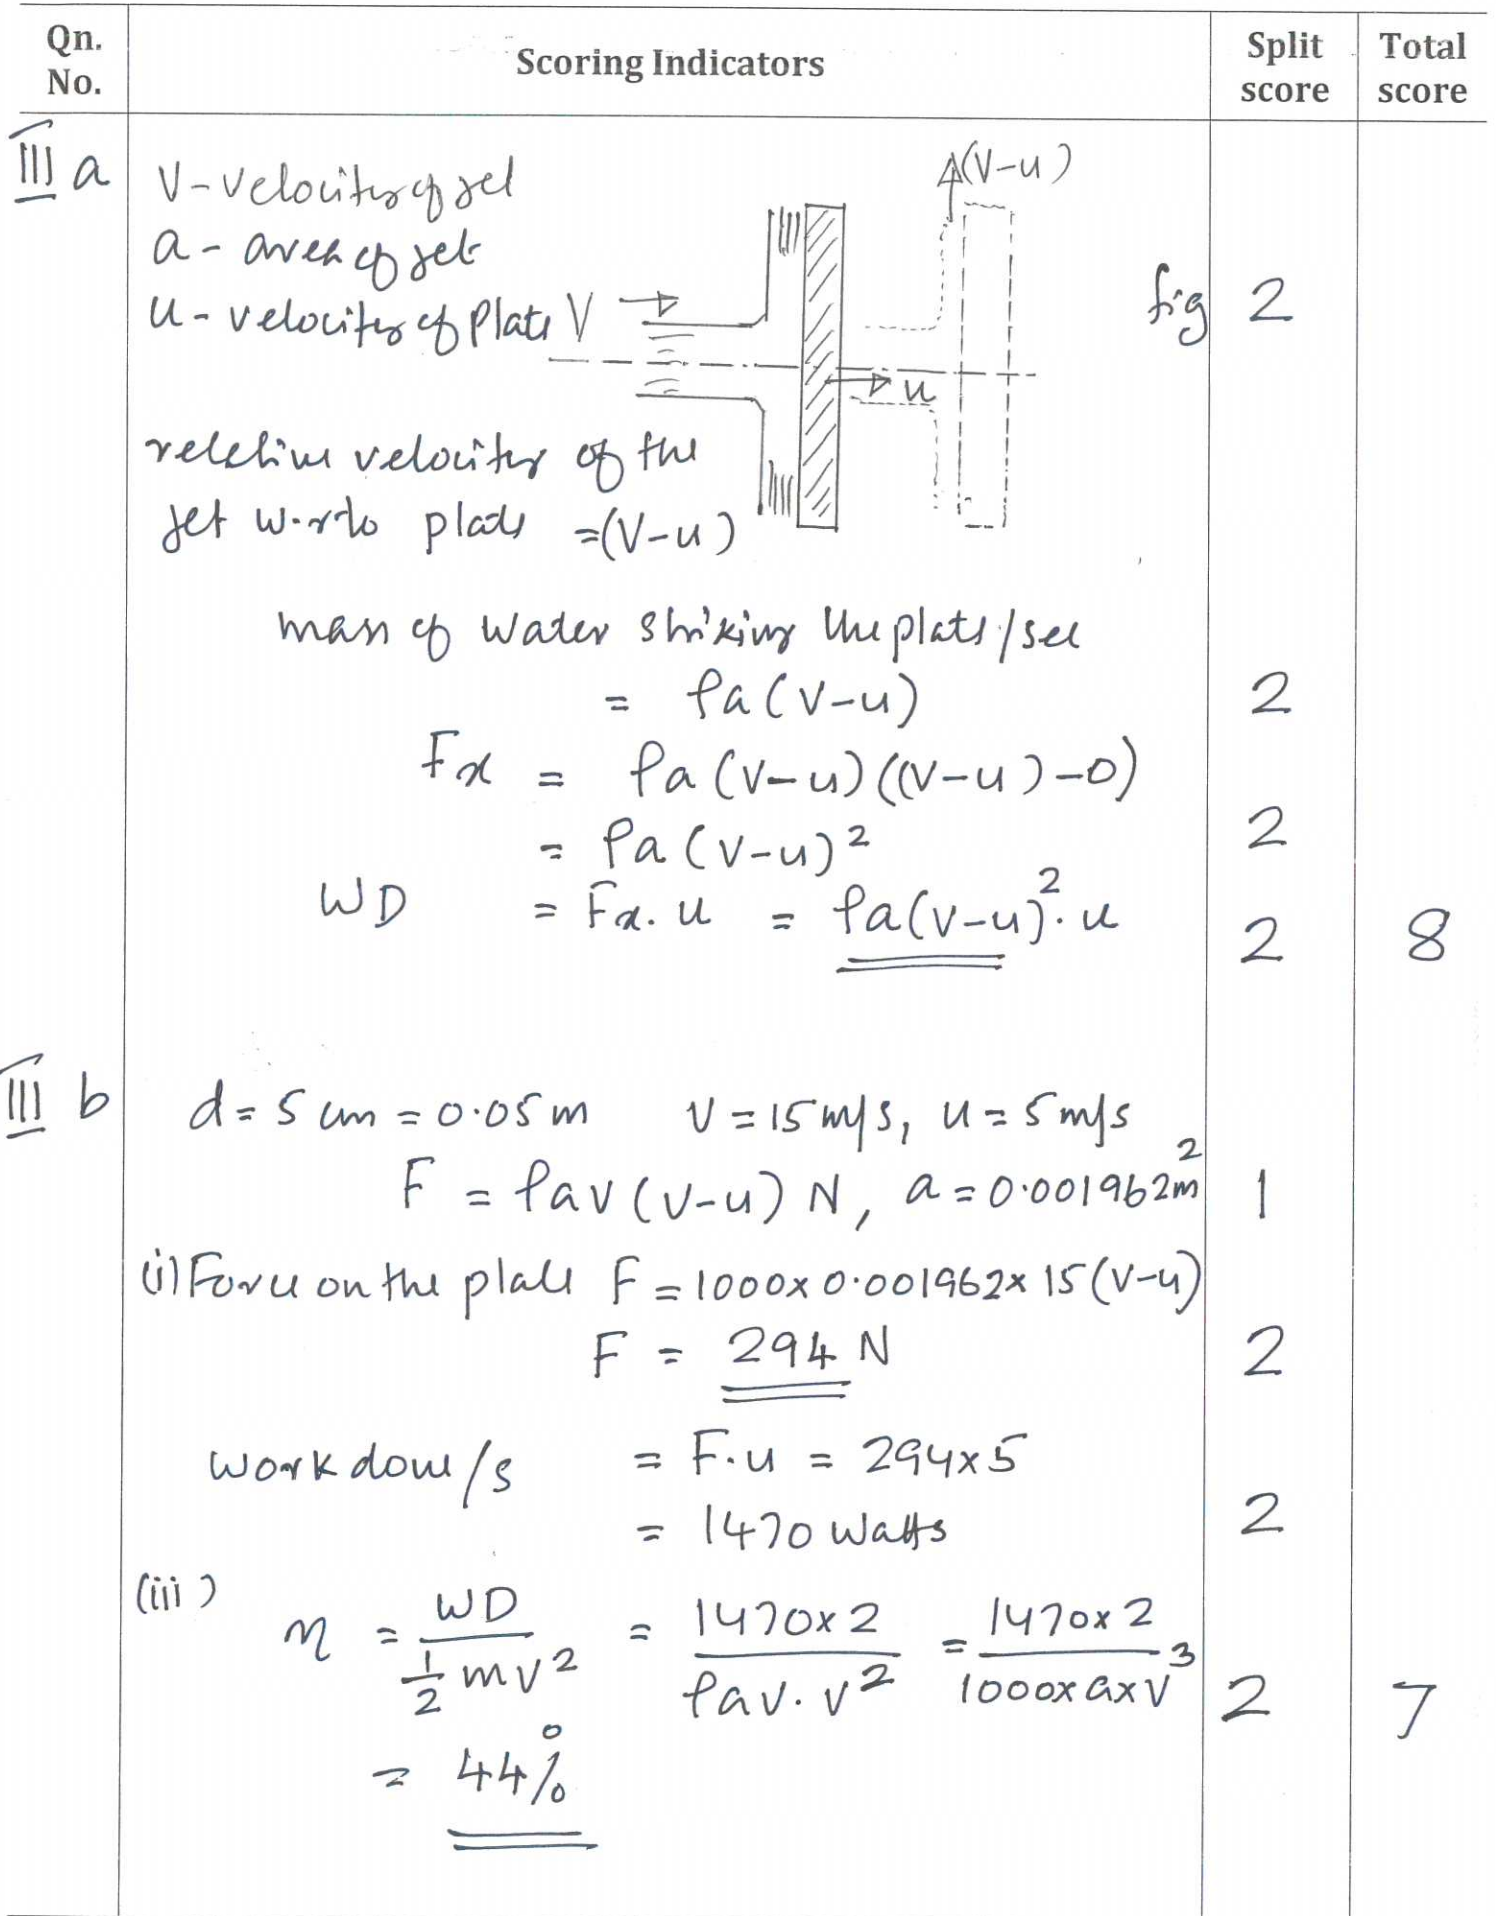 Qn. No.
Scoring Indicators
Split score
Total score
III a
V - velocity of jet
a - area of jet
u - velocity of plate
V
(V-u)
u
fig 2
relative velocity of the
jet w.r.to plate = (V-u)
mass of water striking the plate/sec
= ρa(V-u) 2
Fx = ρa(V-u)((V-u)-0)
= ρa(V-u)² 2
WD = Fx.u = ρa(V-u)².u 2 8
III b
d = 5 cm = 0.05m V = 15 m/s, u = 5 m/s
F = ρav(V-u) N, a = 0.001962m² 1
(i) Force on the plate F = 1000 x 0.001962 x 15 (V-u)
F = 294 N 2
work done/s = F.u = 294x5
= 1470 watts 2
(iii) η = WD / ½ mv² = 1470x2 / ρav.v² = 1470x2 / 1000xaxV³ 2 7
= 44%